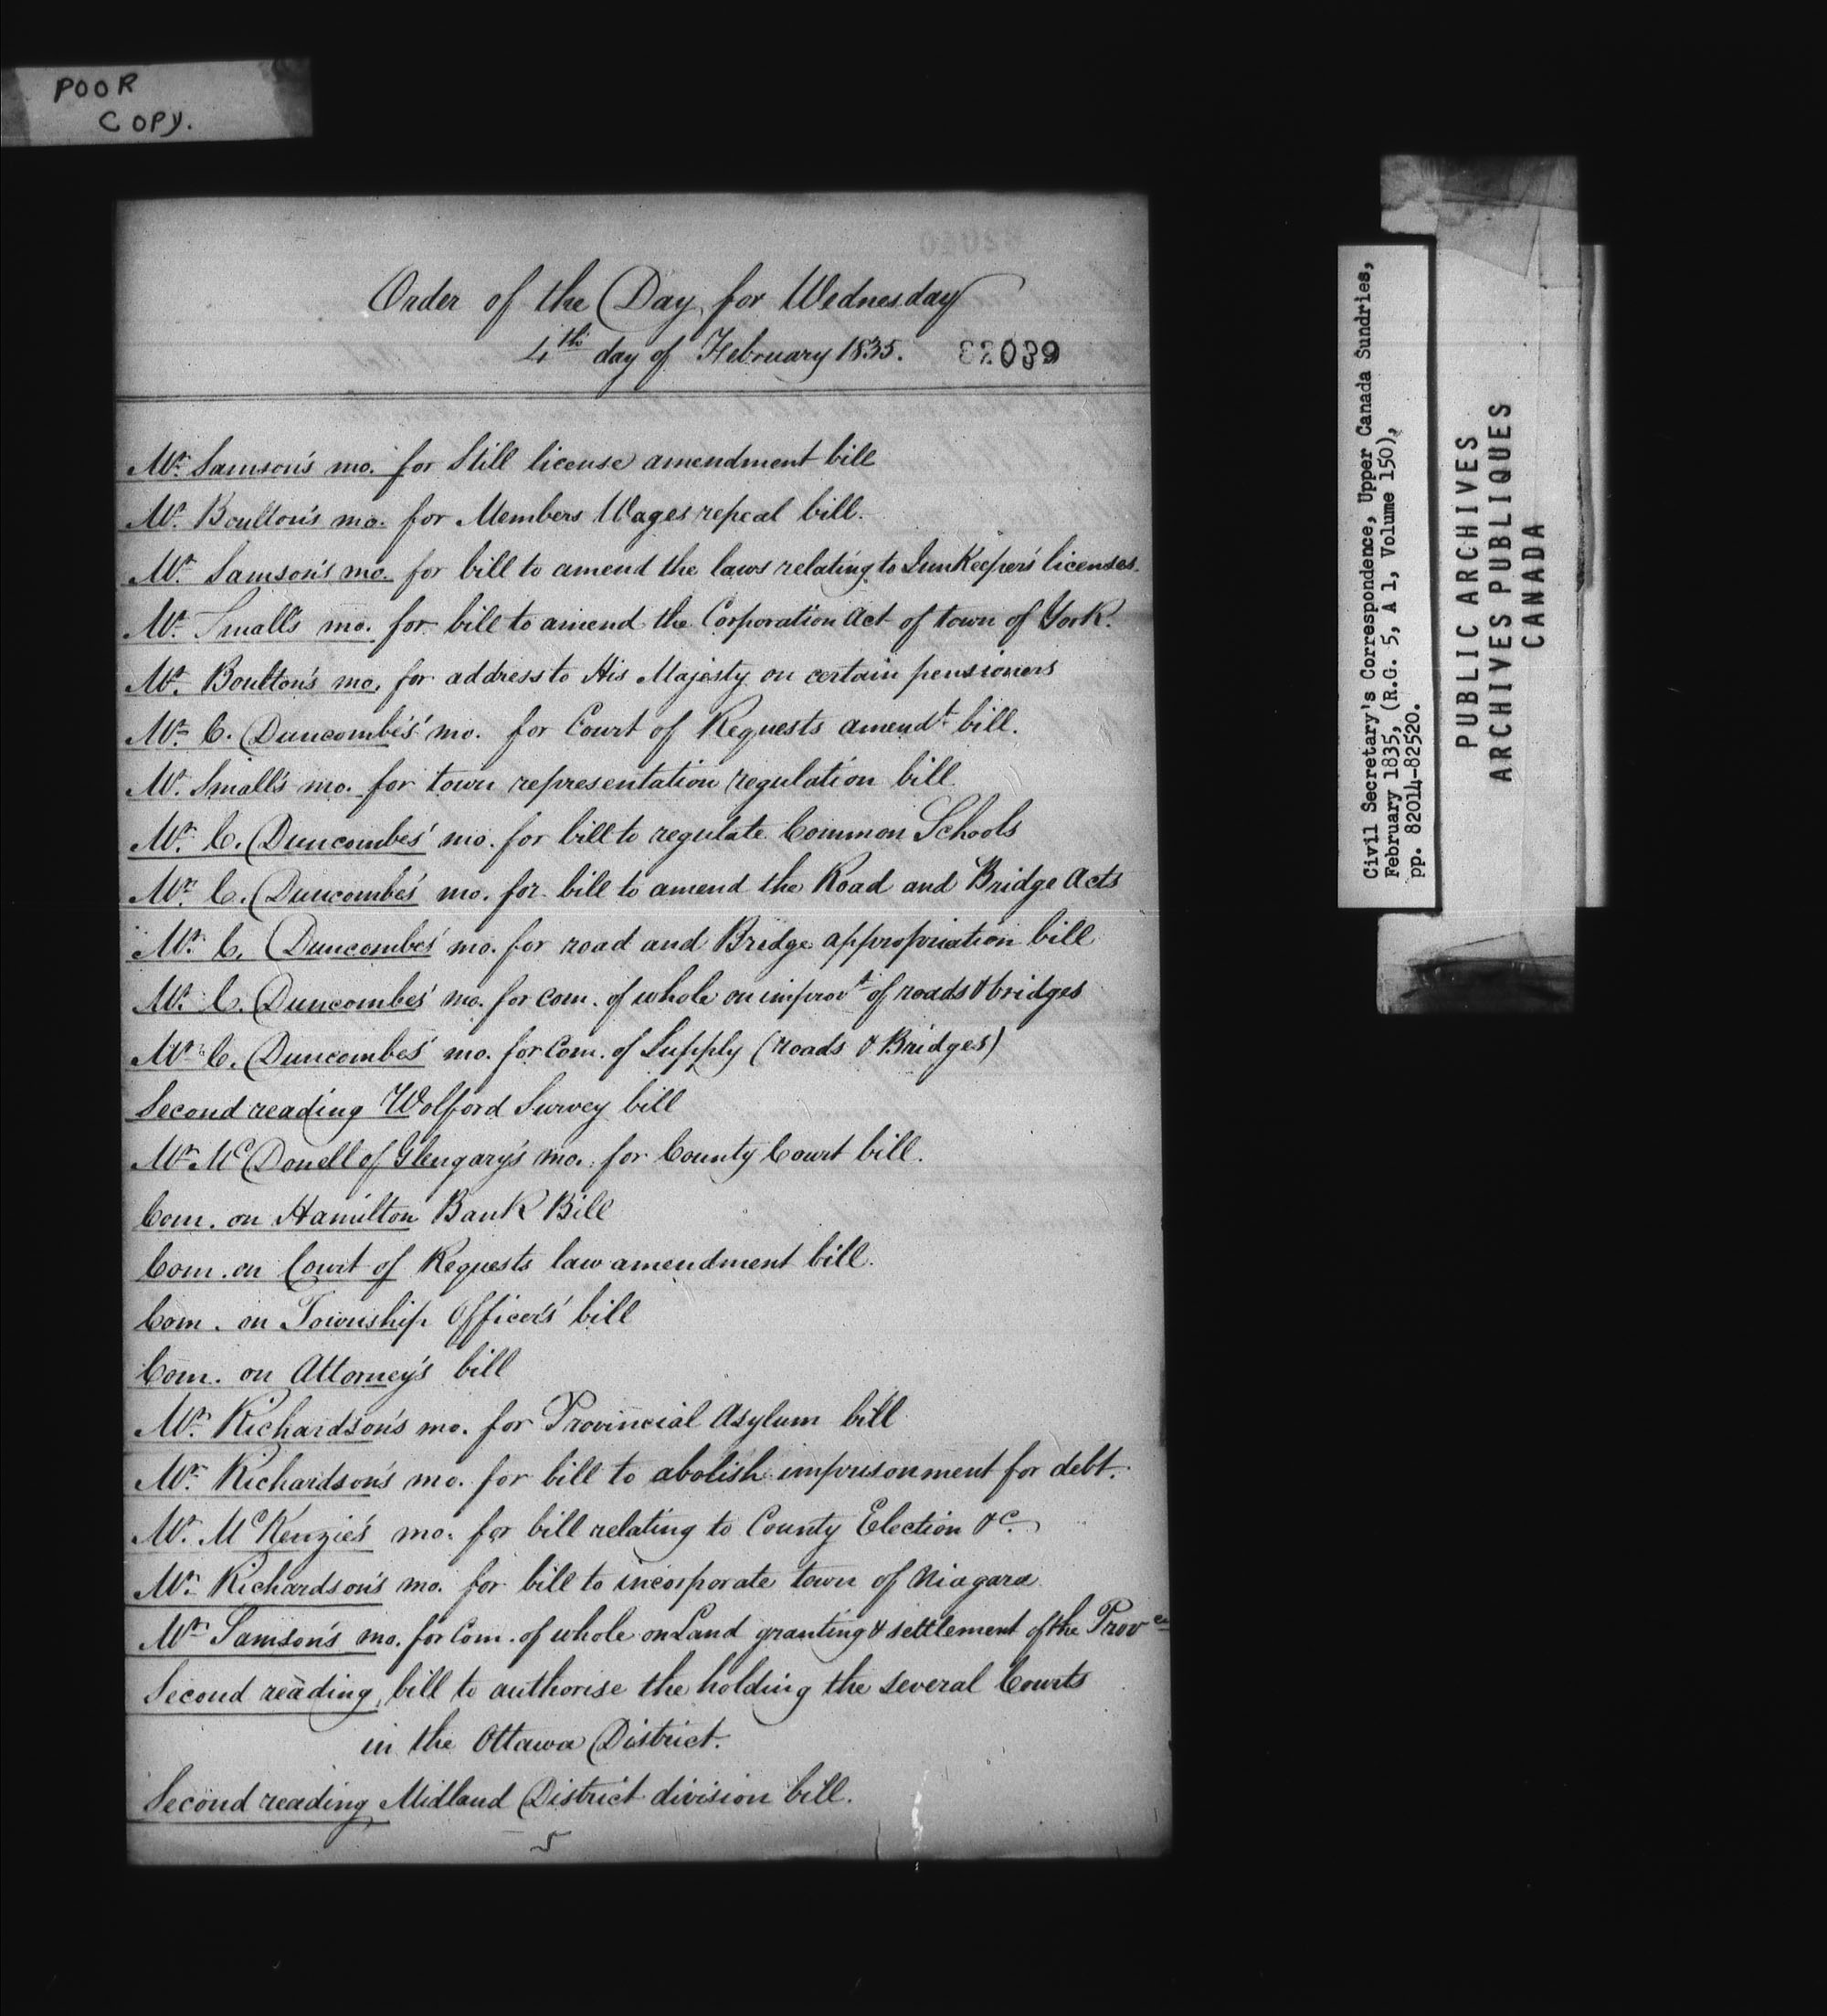 POOR
COPY.
Order of the Day for Wednesday
4th day of February 1835. 82039
Mr. Samson's mo. for Still license amendment bill
Mr. Boulton's mo. for Members Wages repeal bill.
Mr. Samson's mo. for bill to amend the laws relating to InnKeeper's licenses.
Mr. Small's mo. for bill to amend the Corporation Act of town of York.
Mr. Boulton's mo. for address to His Majesty on certain pensioners
Mr. C. Duncombe's' mo. for Court of Requests amendt bill.
Mr. Small's mo. for town representation regulation bill
Mr. C. Duncombes' mo. for bill to regulate Common Schools
Mr. C. Duncombes' mo. for bill to amend the Road and Bridge Acts
Mr. C. Duncombes' mo. for road and Bridge appropriation bill
Mr. C. Duncombes' mo. for com. of whole on improvt of roads & bridges
Mr. C. Duncombes' mo. for Com. of Supply (roads & Bridges)
Second reading Wolford Survey bill
Mr. McDonell of Glengary's mo. for County Court bill.
Com. on Hamilton Bank Bill
Com. on Court of Requests law amendment bill.
Com. on Township Officer's' bill
Com. on Attorney's bill
Mr. Richardson's mo. for Provincial Asylum bill
Mr. Richardson's mo. for bill to abolish imprisonment for debt.
Mr. McKenzie's mo. for bill relating to County Election &c.
Mr. Richardson's mo. for bill to incorporate town of Niagara
Mr. Samson's mo. for Com. of whole on Land granting & settlement of the Provce
Second reading bill to authorise the holding the several Courts
in the Ottawa District.
Second reading Midland District division bill.
5
Civil Secretary's Correspondence, Upper Canada Sundries,
February 1835, (R.G. 5, A 1, Volume 150),
pp. 82014-82520.
PUBLIC ARCHIVES
ARCHIVES PUBLIQUES
CANADA